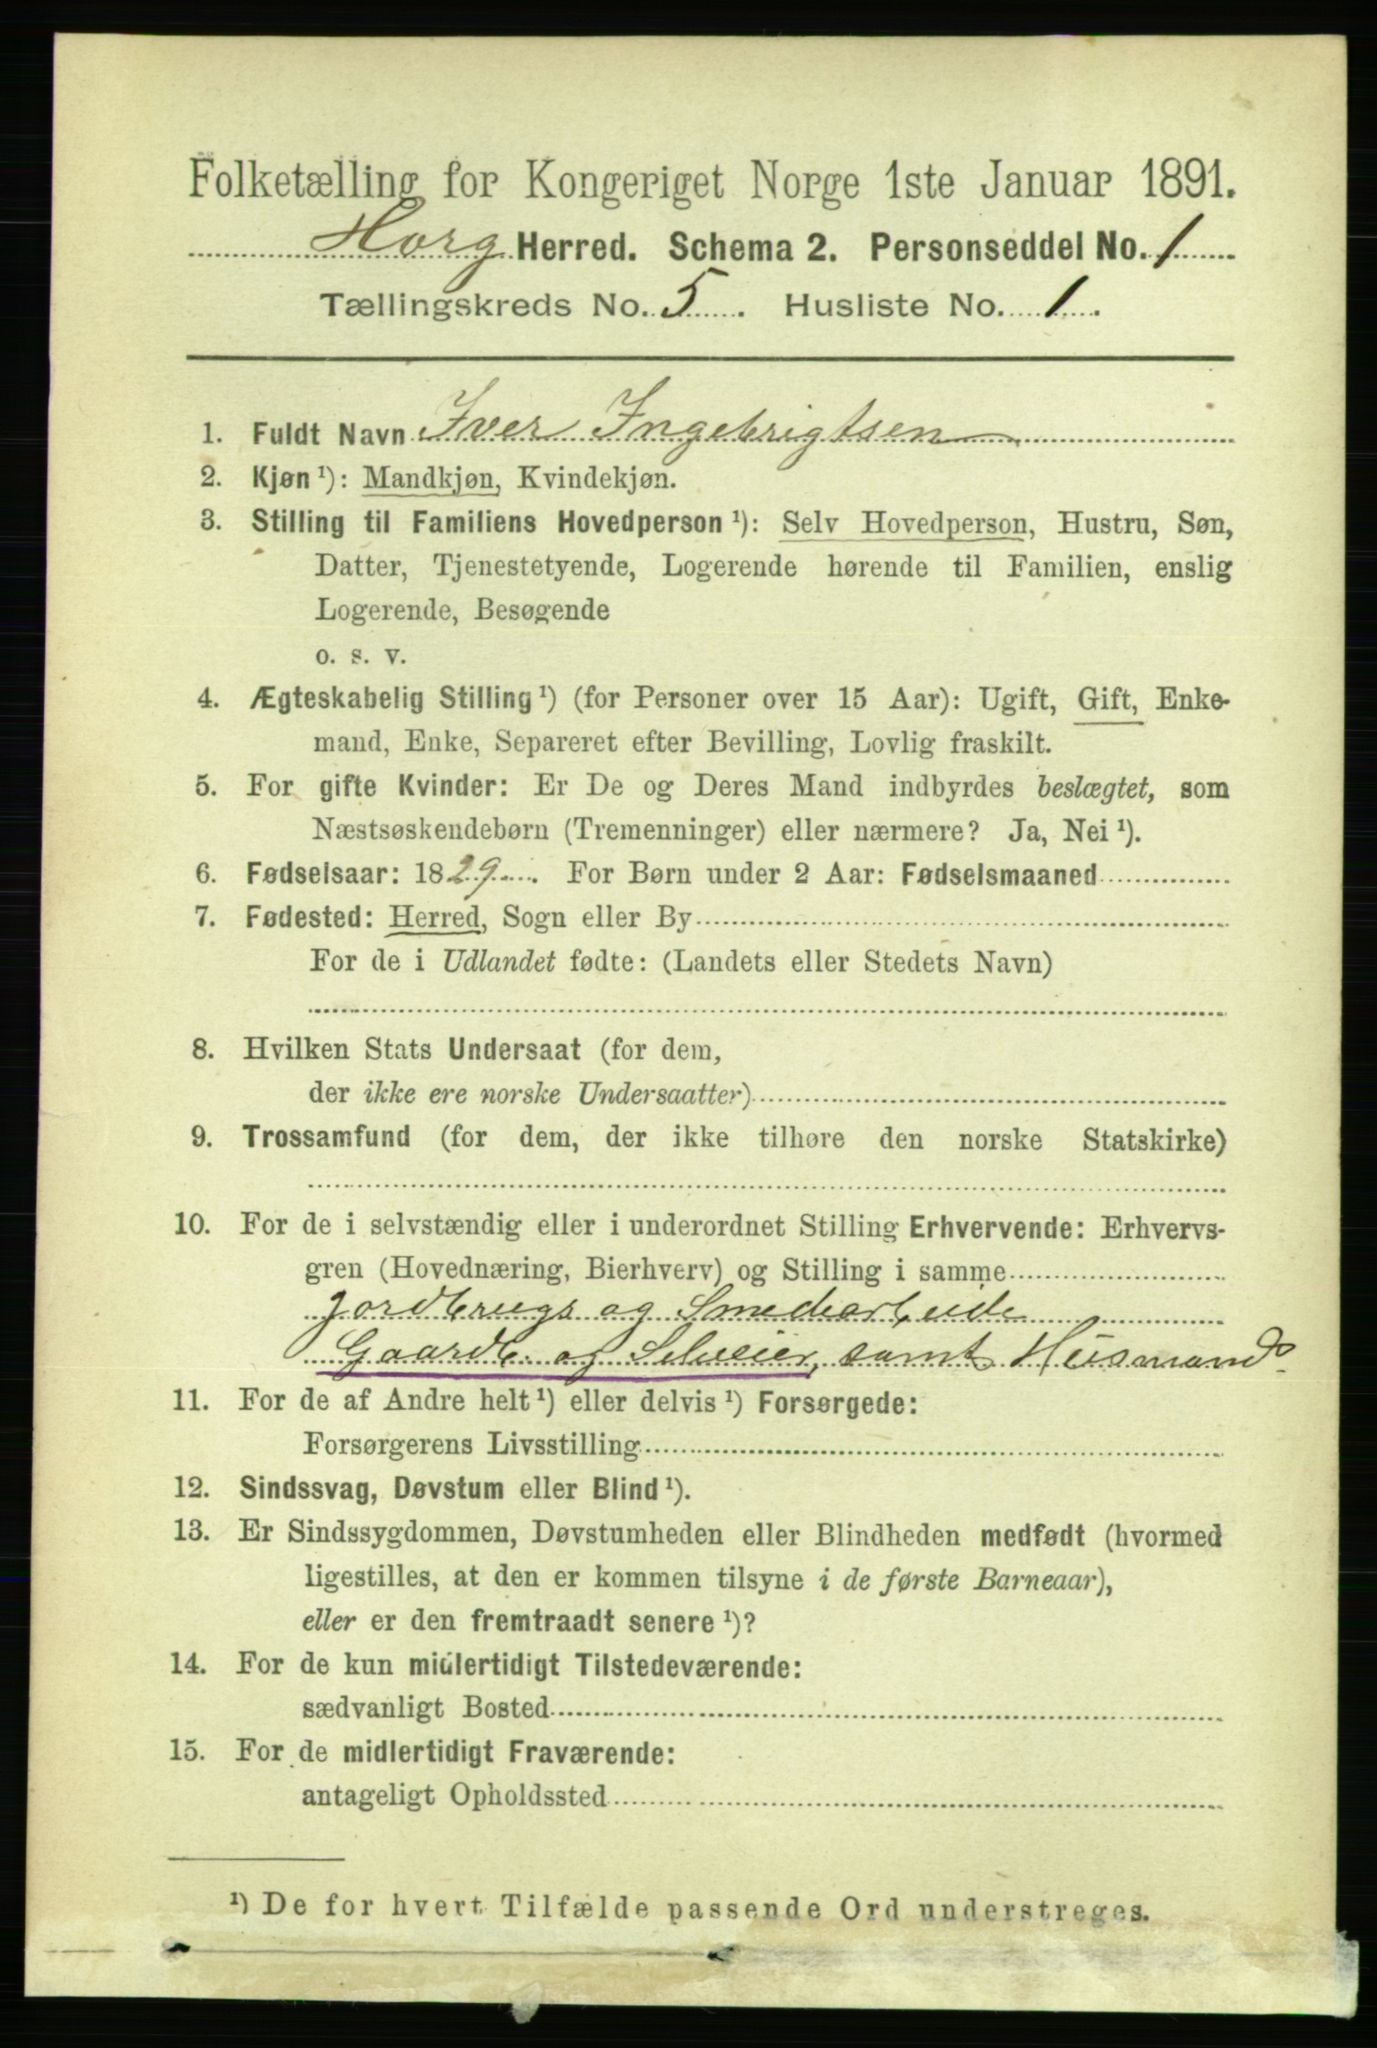 Folketælling for Kongeriget Norge 1ste Januar 1891.
Horg Herred. Schema 2. Personseddel No. 1
Tællingskreds No. 5. Husliste No. 1.
1. Fuldt Navn Iver Ingebrigtsen
2. Kjøn ¹): Mandkjøn, Kvindekjøn.
3. Stilling til Familiens Hovedperson ¹): Selv Hovedperson, Hustru, Søn,
Datter, Tjenestetyende, Logerende hørende til Familien, enslig
Logerende, Besøgende
o. s. v.
4. Ægteskabelig Stilling ¹) (for Personer over 15 Aar): Ugift, Gift, Enke-
mand, Enke, Separeret efter Bevilling, Lovlig fraskilt.
5. For gifte Kvinder: Er De og Deres Mand indbyrdes beslægtet, som
Næstsøskendebørn (Tremenninger) eller nærmere? Ja, Nei ¹).
6. Fødselsaar: 1829. For Børn under 2 Aar: Fødselsmaaned
7. Fødested: Herred, Sogn eller By
For de i Udlandet fødte: (Landets eller Stedets Navn)
8. Hvilken Stats Undersaat (for dem,
der ikke ere norske Undersaatter)
9. Trossamfund (for dem, der ikke tilhøre den norske Statskirke)
10. For de i selvstændig eller i underordnet Stilling Erhvervende: Erhvervs-
gren (Hovednæring, Bierhverv) og Stilling i samme
Jordbrugs og Smedearbeide
Gaardb. og Selveier, samt Husmands
11. For de af Andre helt ¹) eller delvis ¹) Forsørgede:
Forsørgerens Livsstilling
12. Sindssvag, Døvstum eller Blind ¹).
13. Er Sindssygdommen, Døvstumheden eller Blindheden medfødt (hvormed
ligestilles, at den er kommen tilsyne i de første Barneaar),
eller er den fremtraadt senere ¹)?
14. For de kun midlertidigt Tilstedeværende:
sædvanligt Bosted
15. For de midlertidigt Fraværende:
antageligt Opholdssted
¹) De for hvert Tilfælde passende Ord understreges.